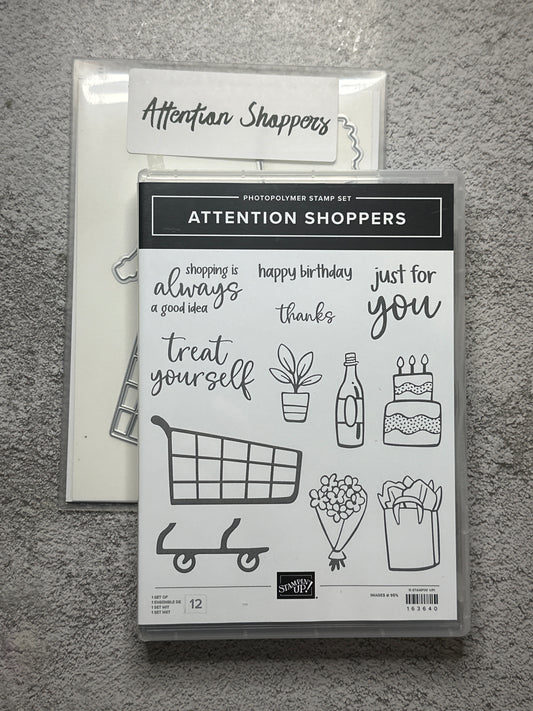 Attention Shoppers
PHOTOPOLYMER STAMP SET
ATTENTION SHOPPERS
shopping is
always
a good idea
happy birthday
thanks
just for
you
treat
yourself
1 SET OF
1 ENSEMBLE DE
1 SET MIT
1 SET MET
12
STAMPIN' UP!
IMAGES @ 95%
© STAMPIN' UP!
163640